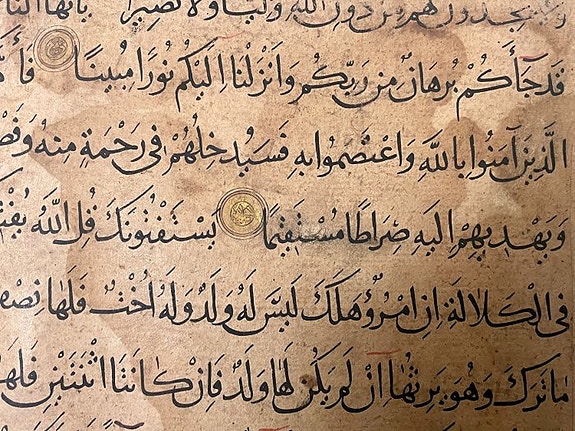 يجدون لهم من دون الله وليا ولا نصيرا يا أيها النا
قد جاءكم برهان من ربكم وأنزلنا إليكم نورا مبينا فأ
الذين آمنوا بالله واعتصموا به فسيدخلهم في رحمة منه وفض
ويهديهم إليه صراطا مستقيما يستفتونك قل الله يفت
في الكلالة إن امرؤ هلك ليس له ولد وله أخت فلها نصف
ما ترك وهو يرثها إن لم يكن لها ولد فإن كانتا اثنتين فلهـ